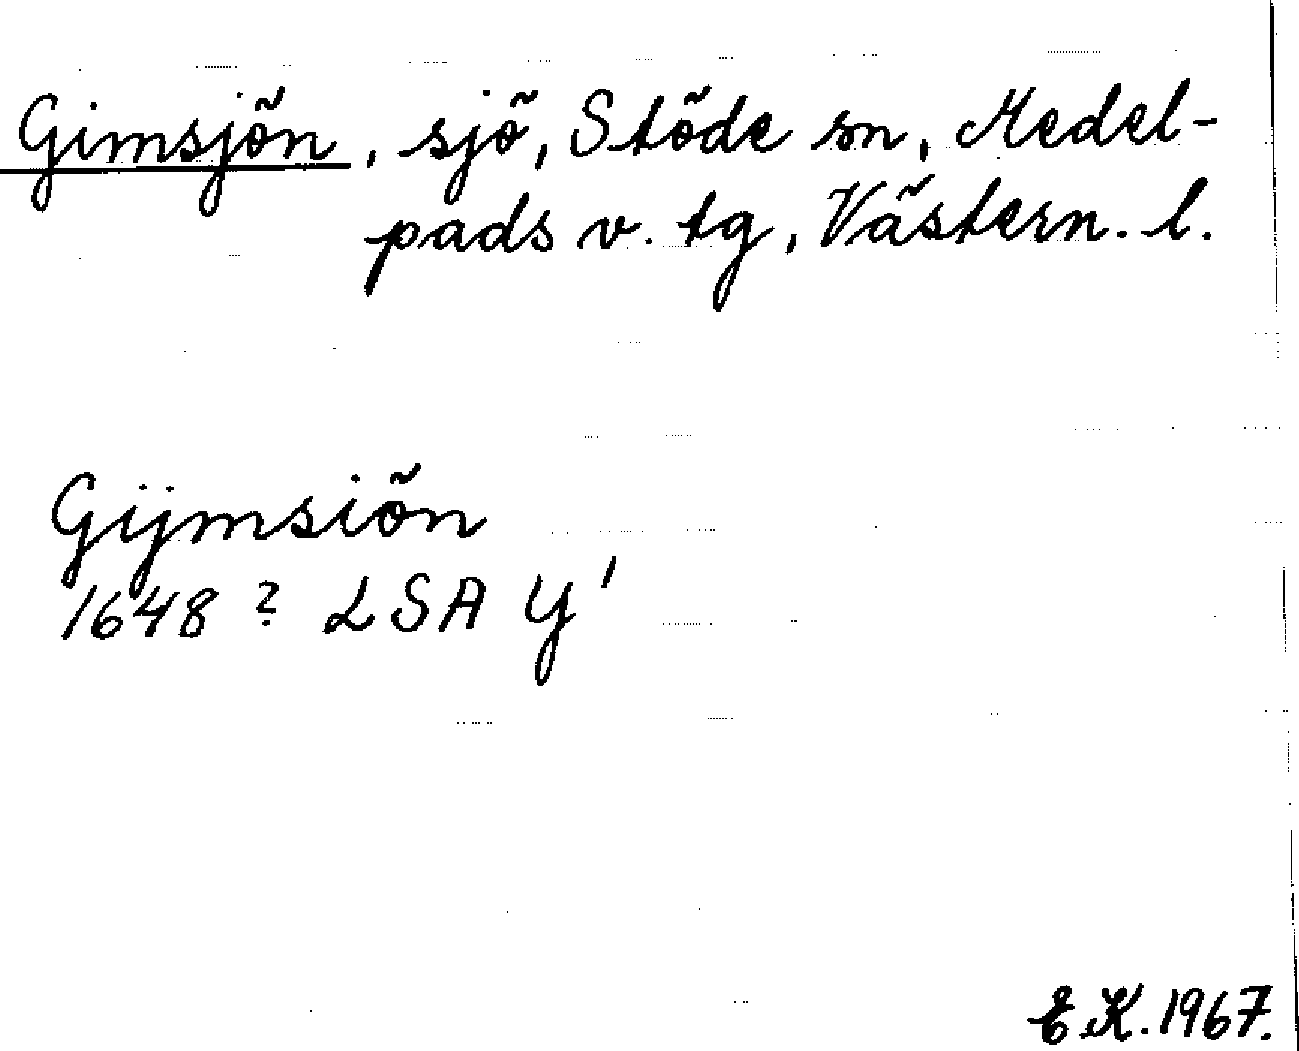 Gimsjön, sjö, Stöde sn, Medel-
pads v. tg, Västern. l.
Gijmsiön
1648? LSA Y'
E.K. 1967.